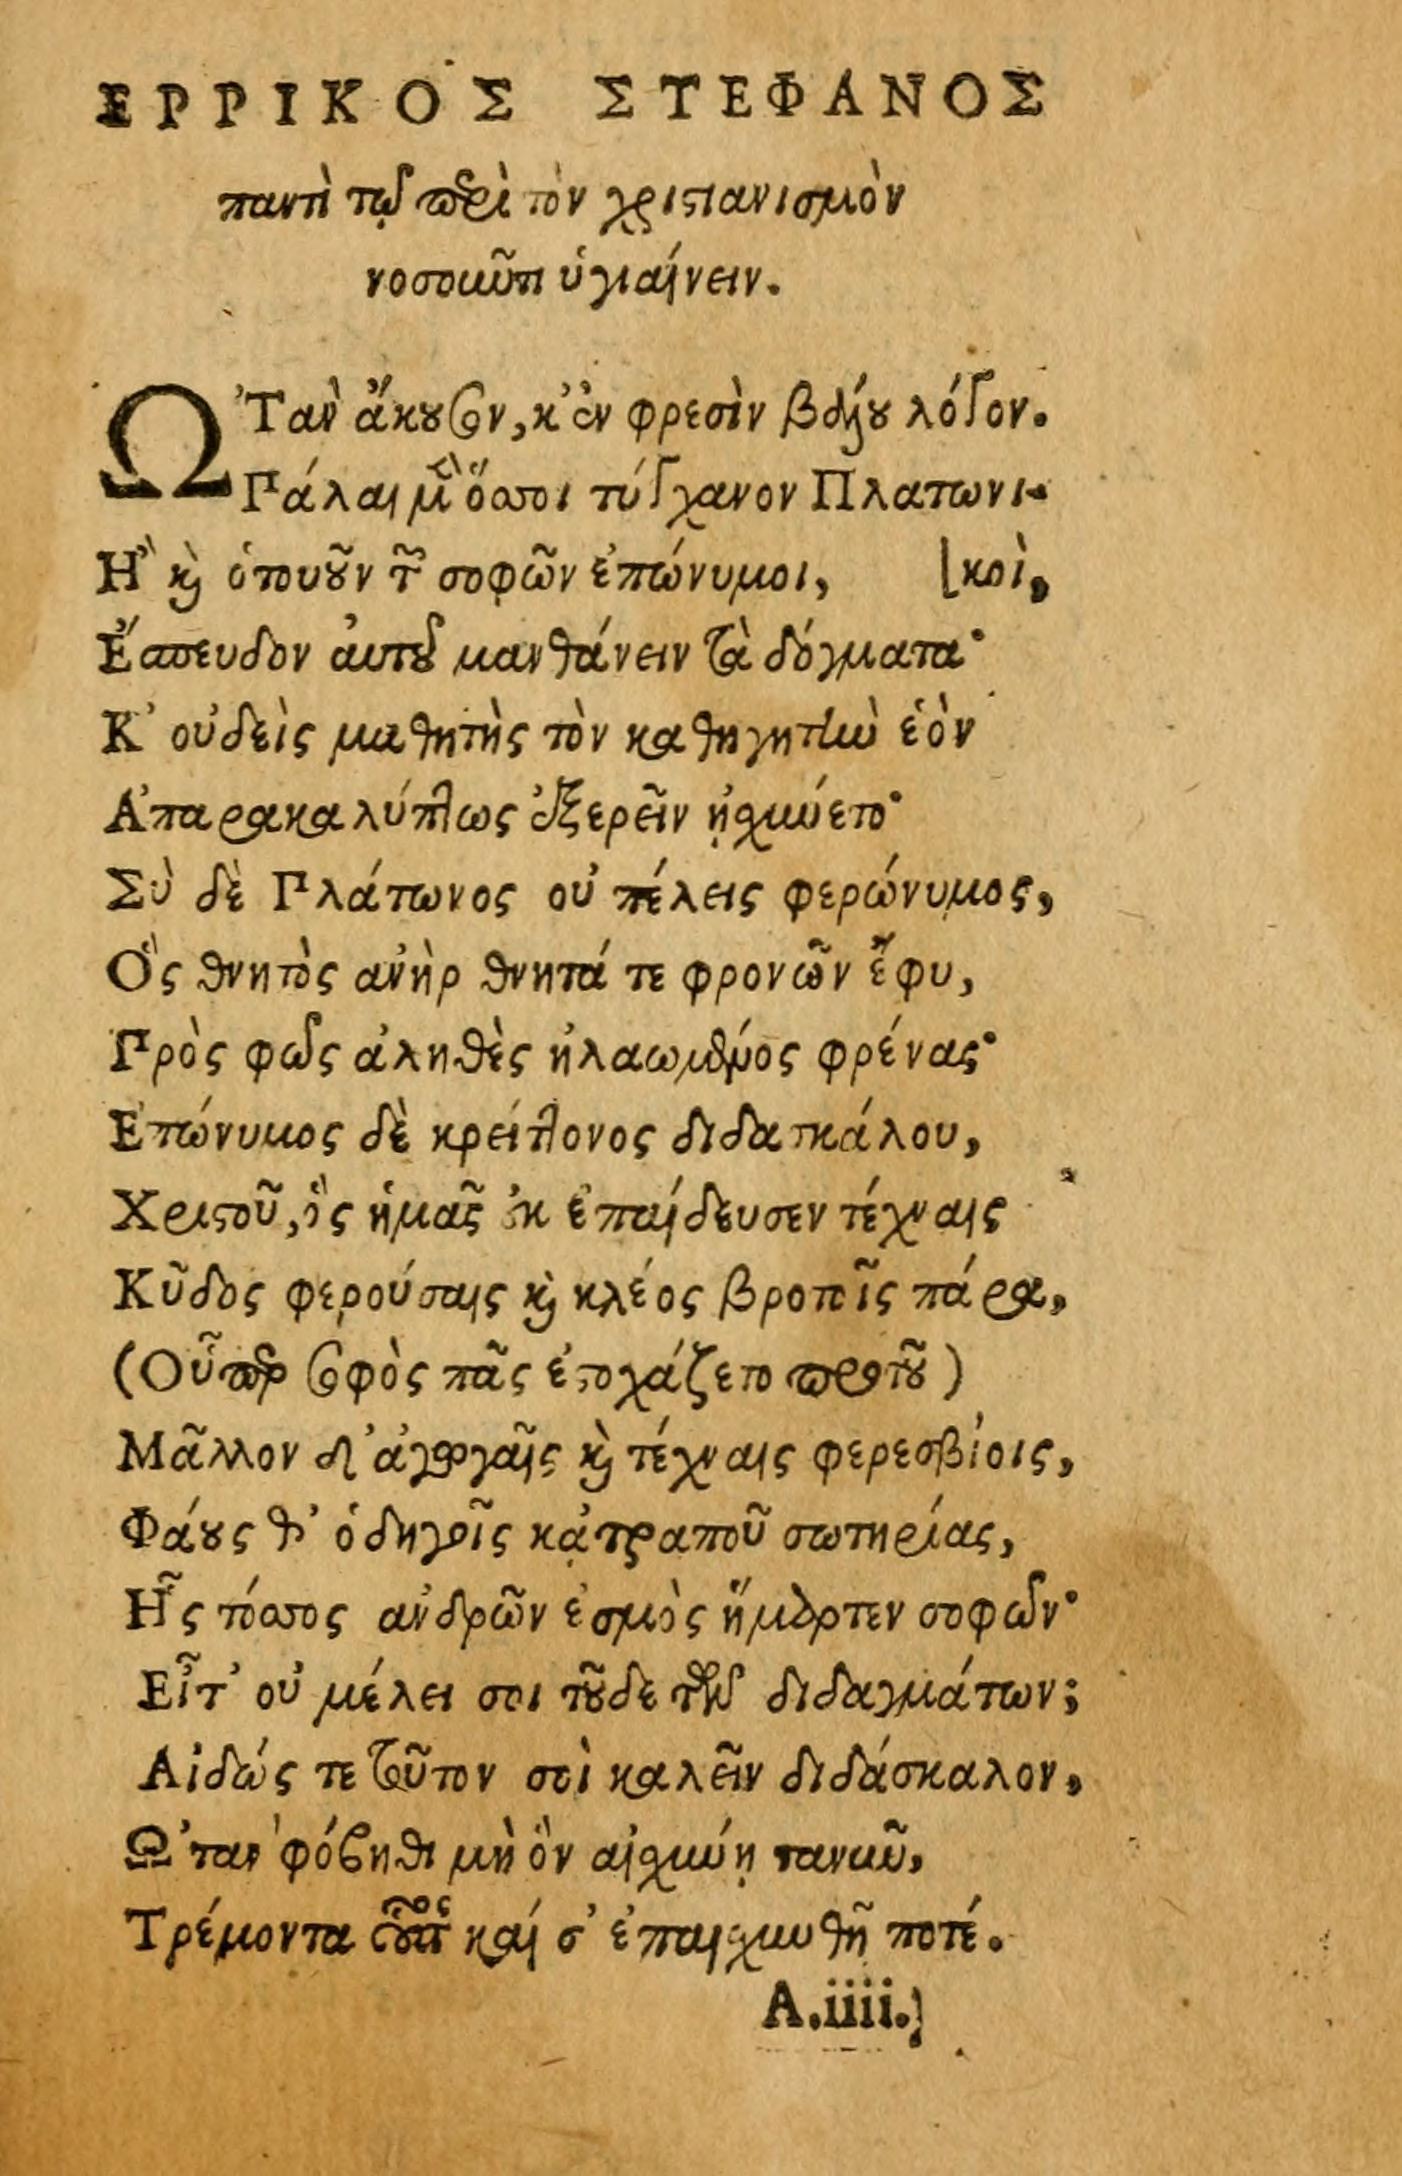 ΕΡΡΙΚΟΣ ΣΤΕΦΑΝΟΣ
παντὶ τῷ περὶ τὸν χριστιανισμὸν
νοσοῦντι ὑγιαίνειν.
Ω᾽Τὰν ἄκουσον, κ᾽ ἐν φρεσὶν βάλου λόγον.
Πάλαι μὲν ὅσσοι τύγχανον Πλατωνι-
Ἢ καὶ ὁτουοῦν τῶν σοφῶν ἐπώνυμοι, [κοὶ,
Ἔσπευδον αὐτοῦ μανθάνειν τὰ δόγματα·
Κ᾽ οὐδεὶς μαθητὴς τὸν καθηγητὴν ἑὸν
Ἀπαρακαλύπτως ἐξερεῖν ᾐσχύετο·
Σὺ δὲ Πλάτωνος οὐ πέλεις φερώνυμος,
Ὃς θνητὸς ἀνὴρ θνητά τε φρονῶν ἔφυ,
Πρὸς φῶς ἀληθὲς ἠλαωμένος φρένας·
Ἐπώνυμος δὲ κρείττονος διδασκάλου,
Χριστοῦ, ὃς ἡμᾶς ἐκ ἐπαίδευσεν τέχναις
Κῦδος φερούσαις καὶ κλέος βροτοῖς πάρα,
(Οὗπερ σοφὸς πᾶς ἐστοχάζετο πρὸ τοῦ)
Μᾶλλον δ᾽ ἀγωγαῖς καὶ τέχναις φερεσβίοις,
Φάους θ᾽ ὁδηγοῖς κἀτραποῦ σωτηρίας,
Ἧς τόσσος ἀνδρῶν ἑσμὸς ἤμβροτεν σοφῶν·
Εἶτ᾽ οὐ μέλει σοι τοῦδε τῶν διδαγμάτων;
Αἰδώς τε τοῦτον σοὶ καλεῖν διδάσκαλον,
Ὦ᾽ταν φόβηθι μὴ ὃν αἰσχύνῃ τανῦν,
Τρέμοντα οὗτος καί σ᾽ ἐπαισχυνθῇ ποτέ.
A.iiii.